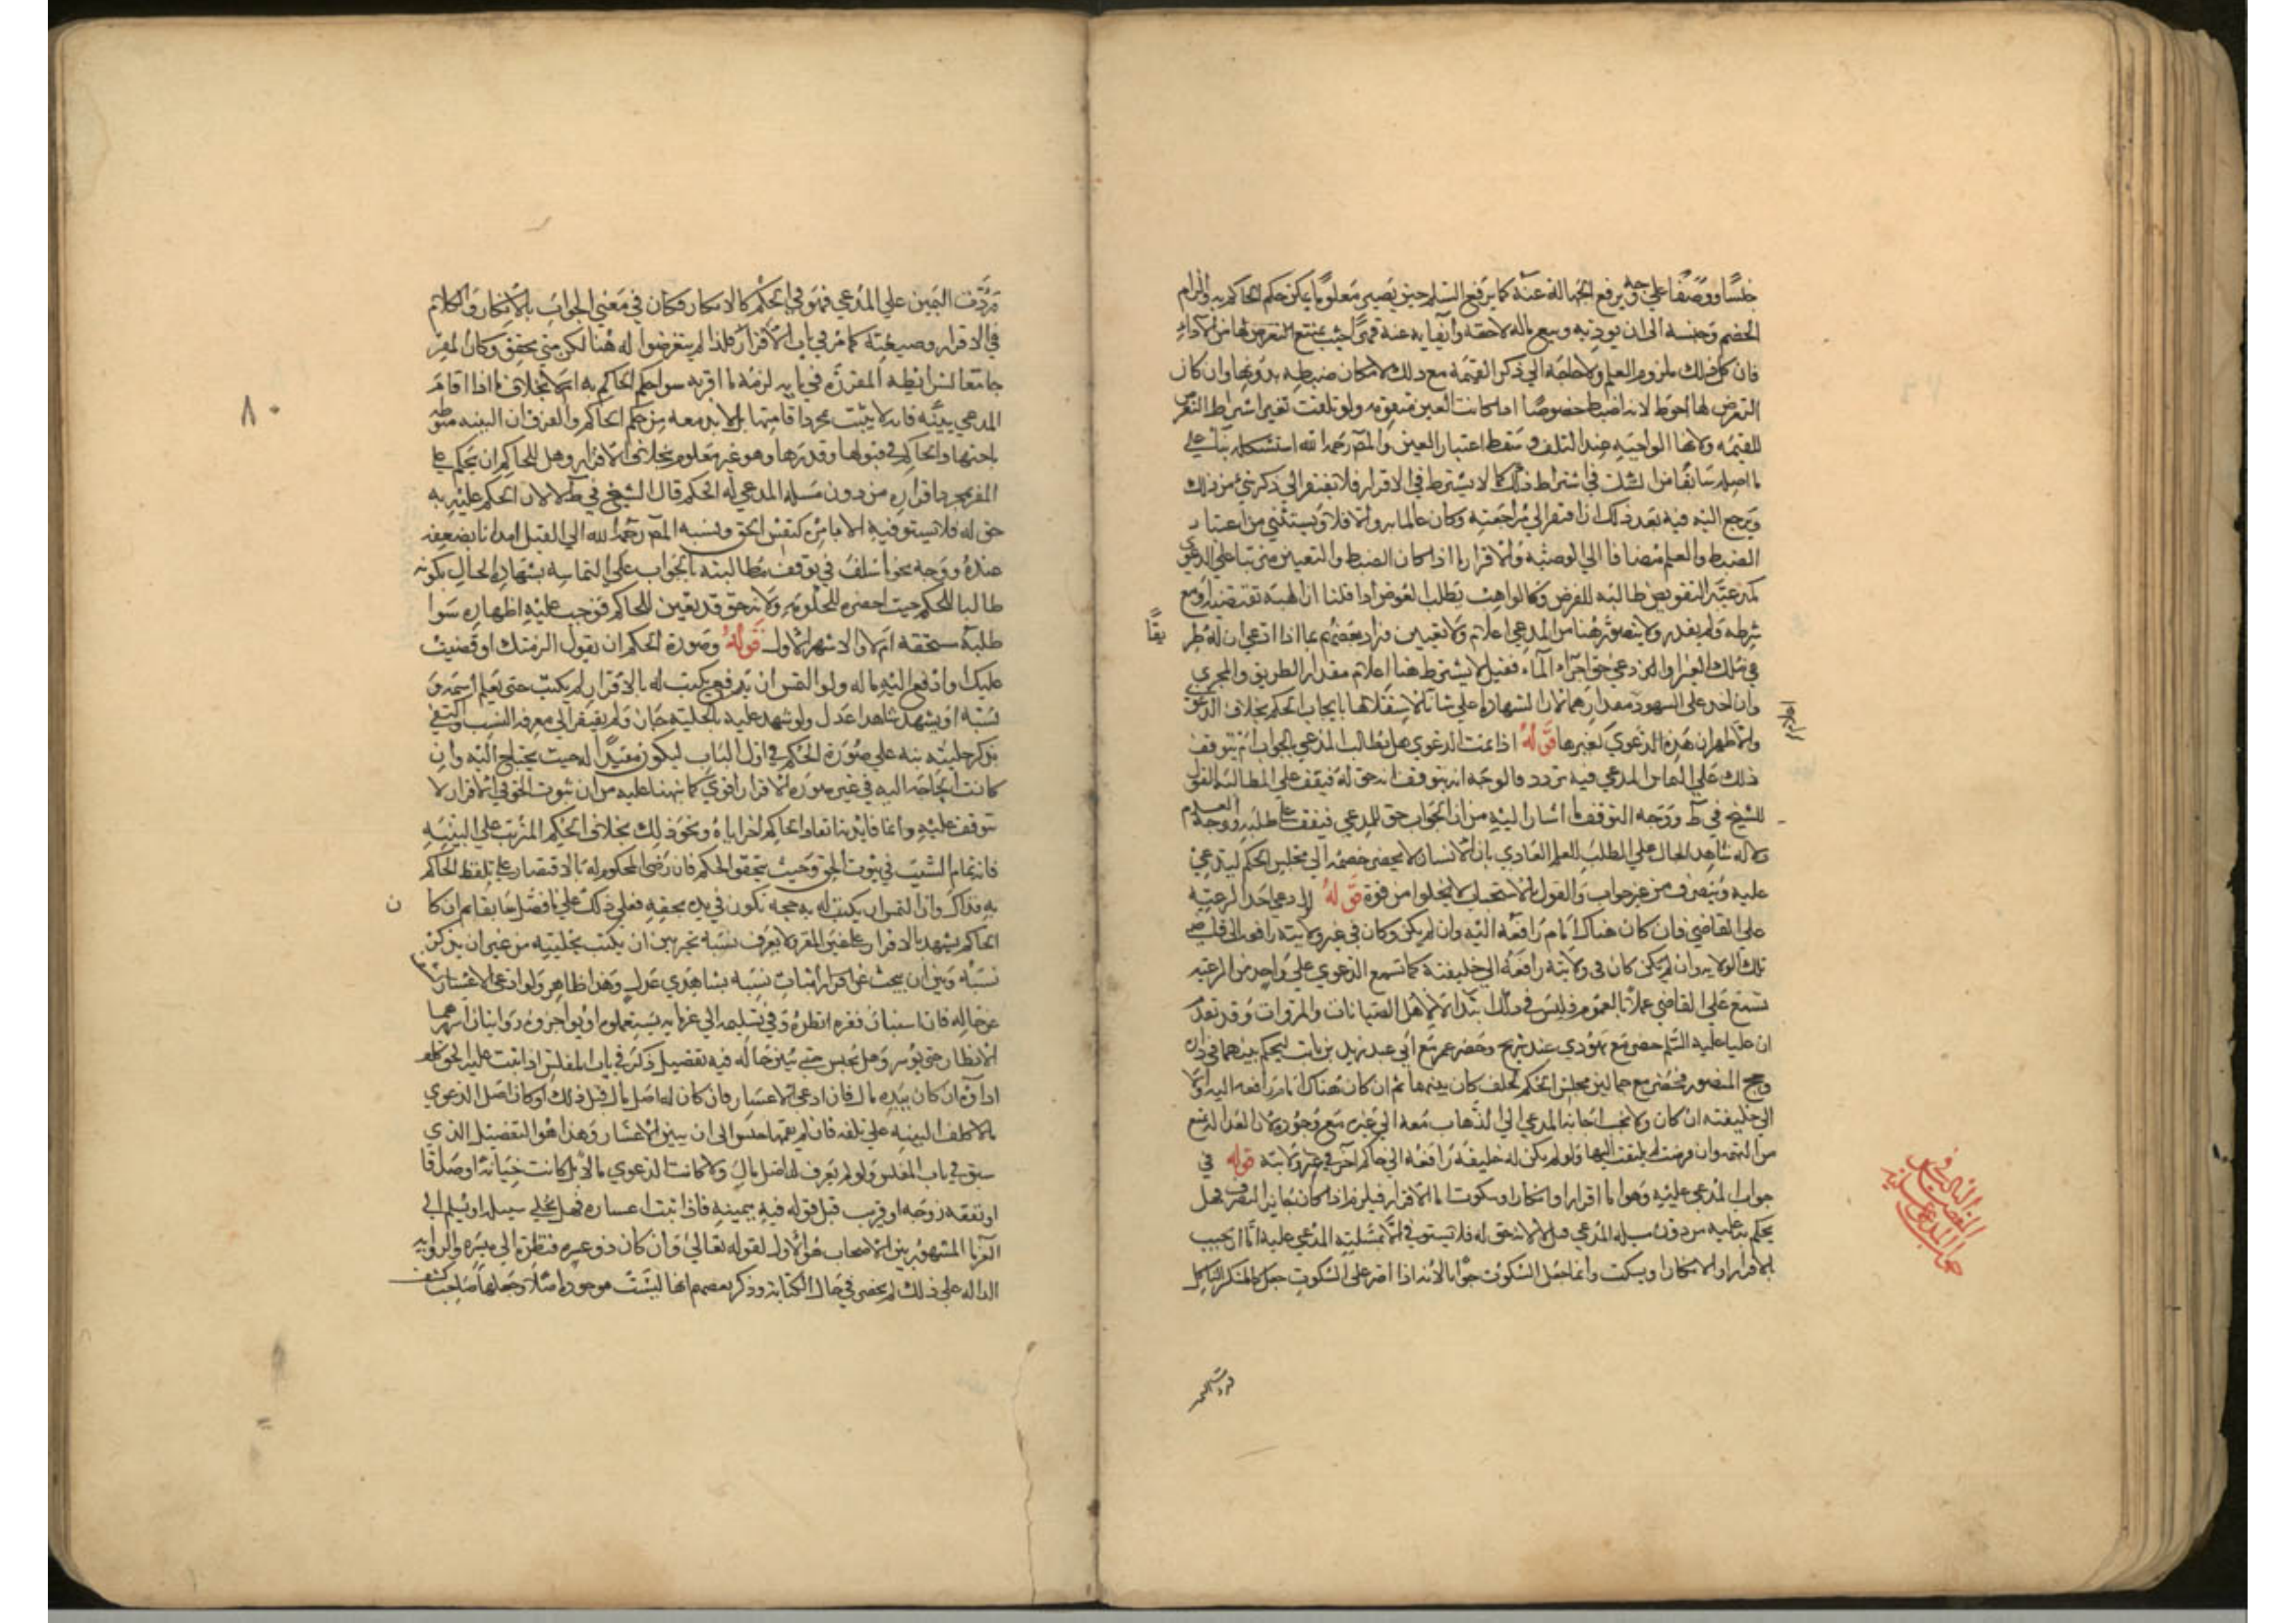 جنسا ووصفا على وجه يرفع الجهالة عنه كما يرفع السلم حتى يصير معلوما يمكن حكم الحاكم به والزام
الخصم وحبسه الى ان يوديه وبيع ماله لاحقه وايفايه عنه قهرا حيث يمتنع المتعرض لها من الاداء
فان كل ذلك ملزوم العلم ولا حاجة الى ذكر القيمة مع ذلك لامكان ضبطه بدونها وان كان
التعرض لها احوط لانه اضبط خصوصا اذا كانت العين متقومه ولو تلفت تعين اشتراط التعرض
للقيمه ولانها الواجبه عند التلف وسقط اعتبار العين والمص رحمه الله استشكله بنا على
ما اصله سابقا من الشك في اشتراط ذلك كما لا يشترط في الاقرار فلا تفتقر الى ذكر شي من ذلك
ويرجع اليه فيه بعد ذلك اذا افتقر الى مراجعته وكان عالما به والا فلا ويستثنى من اعتبار
الضبط والعلم مضافا الى الوصيه والاقرار ما اذا كان الضبط والتعيين مترتبا على الدعوى
كمدعيه التفويض طالبه للفرض وكالواهب يطلب العوض اذا قلنا ان الهبة تقتضيه او مع
شرطه ولم يقدر ولا يتصور هنا من المدعي اعلام ولا تعيين وزاد بعضهم بما اذا ادعى ان له طر
يقا
في ملك الغير او ادعى حق اجراء الماء فقيل لا يشترط هنا اعلام مقدار الطريق والمجرى
وان اخذ على الشهود مقدارهما لان الشهادة اعلى شانا لاستقلالها بايجاب الحكم بخلاف الدعوى
والاظهر ان هذه الدعوى كغيرها قوله اذا تمت الدعوى هل يطالب المدعى بالجواب ام يتوقف
ذلك على التماس المدعي فيه تردد والوجه انه يتوقف لانه حق له فيقف على المطالبة القول
للشيخ في ط ووجه التوقف ما اشار اليه من ان الجواب حق للمدعي فيقف على طلبه ووجه العدم
دلاله شاهد الحال على الطلب للعلم العادي بان الانسان لا يحضر خصمه الى مجلس الحكم ليدعي
عليه وينصرف من غير جواب والقول بالاستحباب لا يخلوا من قوة قوله لو ادعى احد الرعية
على القاضي فان كان هناك امام رافعه اليه وان لم يكن وكان في غير ولايته رافعه الى قاضي
تلك الولايه وان لم يكن كان في ولايته رافعه الى خليفته كما تسمع الدعوى على واحد من الرعيه
تسمع على القاضي عملا بالعموم وليس في ذلك ابتدال لاهل الصيانات والمروات وقد تقدم
ان عليا عليه السلم حضر مع يهودي عند شريح وحضر عمر مع ابي عند زيد بن ثابت ليحكم بينهما في داره
وحج المنصور فحضر مع جمالين مجلس الحكم لحلف كان بينهما ثم ان كان هناك امام رافعه اليه والا
الى خليفته ان كان ولا تجب اجابة المدعي الى الذهاب معه الى غيره مع وجوده لان العدالة تمنع
من التهمة وان فرضت لم يلتفت اليها ولو لم يكن له خليفة رافعه الى حاكم اخر في غير ولايته قوله في
جواب المدعى عليه وهو اما اقرار او انكار او سكوت اما الاقرار فيلزم اذا كان جايز التصرف وهل
يحكم به عليه من دون مسله المدعي قيل لا لانه حق له فلا تستوفى الا بمسئلته المدعى عليه اما ان يجيب
بالاقرار او الانكار او يسكت وانما جعل السكوت جوابا لانه اذا اصر على السكوت جعل كالمنكر الناكل
المقصد الثالث في
جواب المدعى عليه
فردت اليمين
فردت اليمين على المدعي فهو في الحكم كالانكار فكان في معنى الجواب بالانكار والكلام
في الاقرار وصيغته كما مر في باب الاقرار فلذا لم يتعرضوا له هنا لكن متى تحقق وكان المقر
جامعا لشرايطه المقرره في بابه لزمه ما اقر به سوا حكم الحاكم به ام لا بخلاف ما اذا اقام
المدعي بينه فانه لا يثبت بمجرد اقامتها بل لا بد معه من حكم الحاكم والفرق ان البينه منوطه
باجتهاد الحاكم في قبولها وردها وهو غير معلوم بخلاف الاقرار وهل للحاكم ان يحكم على
المقر بمجرد اقراره من دون مسله المدعي له الحكم قال الشيخ في ط لا لان الحكم عليه به
حق له فلا يستوفيه الا بامره كنفس الحق ونسبه المص رحمه الله الى القيل ايذانا بضعفه
عنده ووجهه نحو ما سلف في توقف مطالبته بالجواب على التماسه بشهادة الحال بكونه
طالبا للحكم حيث احضره للحكومه ولانه حق قد تعين للحاكم فوجب عليه اظهاره سوا
طلبه مستحقه ام لا والاشهر الاول قوله وصورة الحكم ان يقول الزمتك او قضيت
عليك او ادفع اليه ماله ولو التمس ان يكتب له بالاقرار لم يكتب حتى يعلم اسمه و
نسبه او يشهد شاهدا عدل ولو شهد عليه بالحلية جاز ولم يفتقر الى معرفه النسب واكتفي
بذكر حليته نبه على صورة الحكم في اول الباب ليكون مفيدا له حيث يحتاج اليه وان
كانت الحاجة اليه في غير صورة الاقرار اقوى كما نبهنا عليه من ان ثبوت الحق في الاقرار لا
تتوقف عليه وانما فايدته انفاذ الحاكم اخر اياه ونحو ذلك بخلاف الحكم المترتب على البينه
فانه تمام السبب في ثبوت الحق وحيث يتحقق الحكم فان رضي المحكوم له بالاقتصار على تلفظ الحاكم
به فذاك وان التمس ان يكتب له به حجه تكون في يده بحقه فعلى ذلك على ما فصل سابقا ثم ان كا
ن
الحاكم يشهد بالاقرار على عين المقر ولا يعرف نسبه تخير بين ان يكتب بحليته من غير ان يذكر
نسبه وبين ان يبحث عن اثبات نسبه بشاهدي عدل وهذا ظاهر ولو ادعى الاعسار
عن حاله فان استبان فقره انظره وفي تسليمه الى غرمايه ليستعملوه او يواجروه روايتان اشهرهما
الانظار حتى يوسر وهل يحبس حتى يتبين حاله فيه تفصيل ذكر في باب المفلس اذا ثبت عليه الحق كلف
اداؤه ان كان بيده مال فان ادعى الاعسار فان كان له اصل مال قبل ذلك او كان اصل الدعوى
مالا كلف البينه على تلفه فان لم يقمها حبس الى ان يتبين الاعسار وهذا هو التفصيل الذي
سبق في باب المفلس ولو لم يعرف له اصل مال ولا كانت الدعوى مالا بل كانت جناية او صداقا
او نفقه زوجه او قريب قبل قوله فيه بيمينه فاذا ثبت اعساره فهل يخلى سبيله او يسلم الى
الغرما المشهور بين الاصحاب هو الاول لقوله تعالى وان كان ذو عسره فنظرة الى ميسره والروايه
الداله على ذلك لم تحضرني حال الكتابه وذكر بعضهم انها ليست موجوده اصلا وجعلها صاحب كشف
٨٠